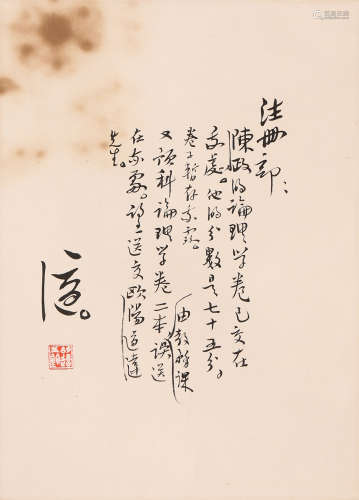 註册部：
陳政的論理学卷已交在
我處。他的分數是七十五分。
卷子暫存我處。由教務課
又預科論理学卷二本誤送
在我處。請送交歐陽道達
先生。
適。